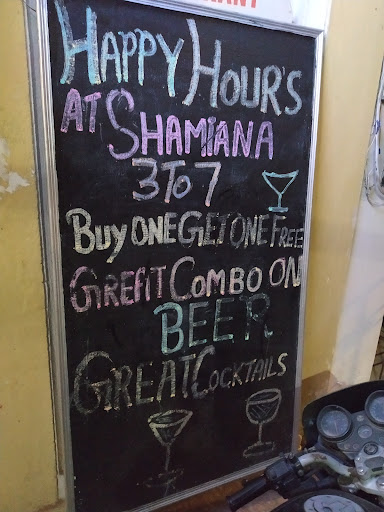 HAPPY HOUR'S
AT SHAMIANA
3 TO 7
BUY ONE GET ONE FREE
GREAT COMBO ON
BEER
GREAT COCKTAILS